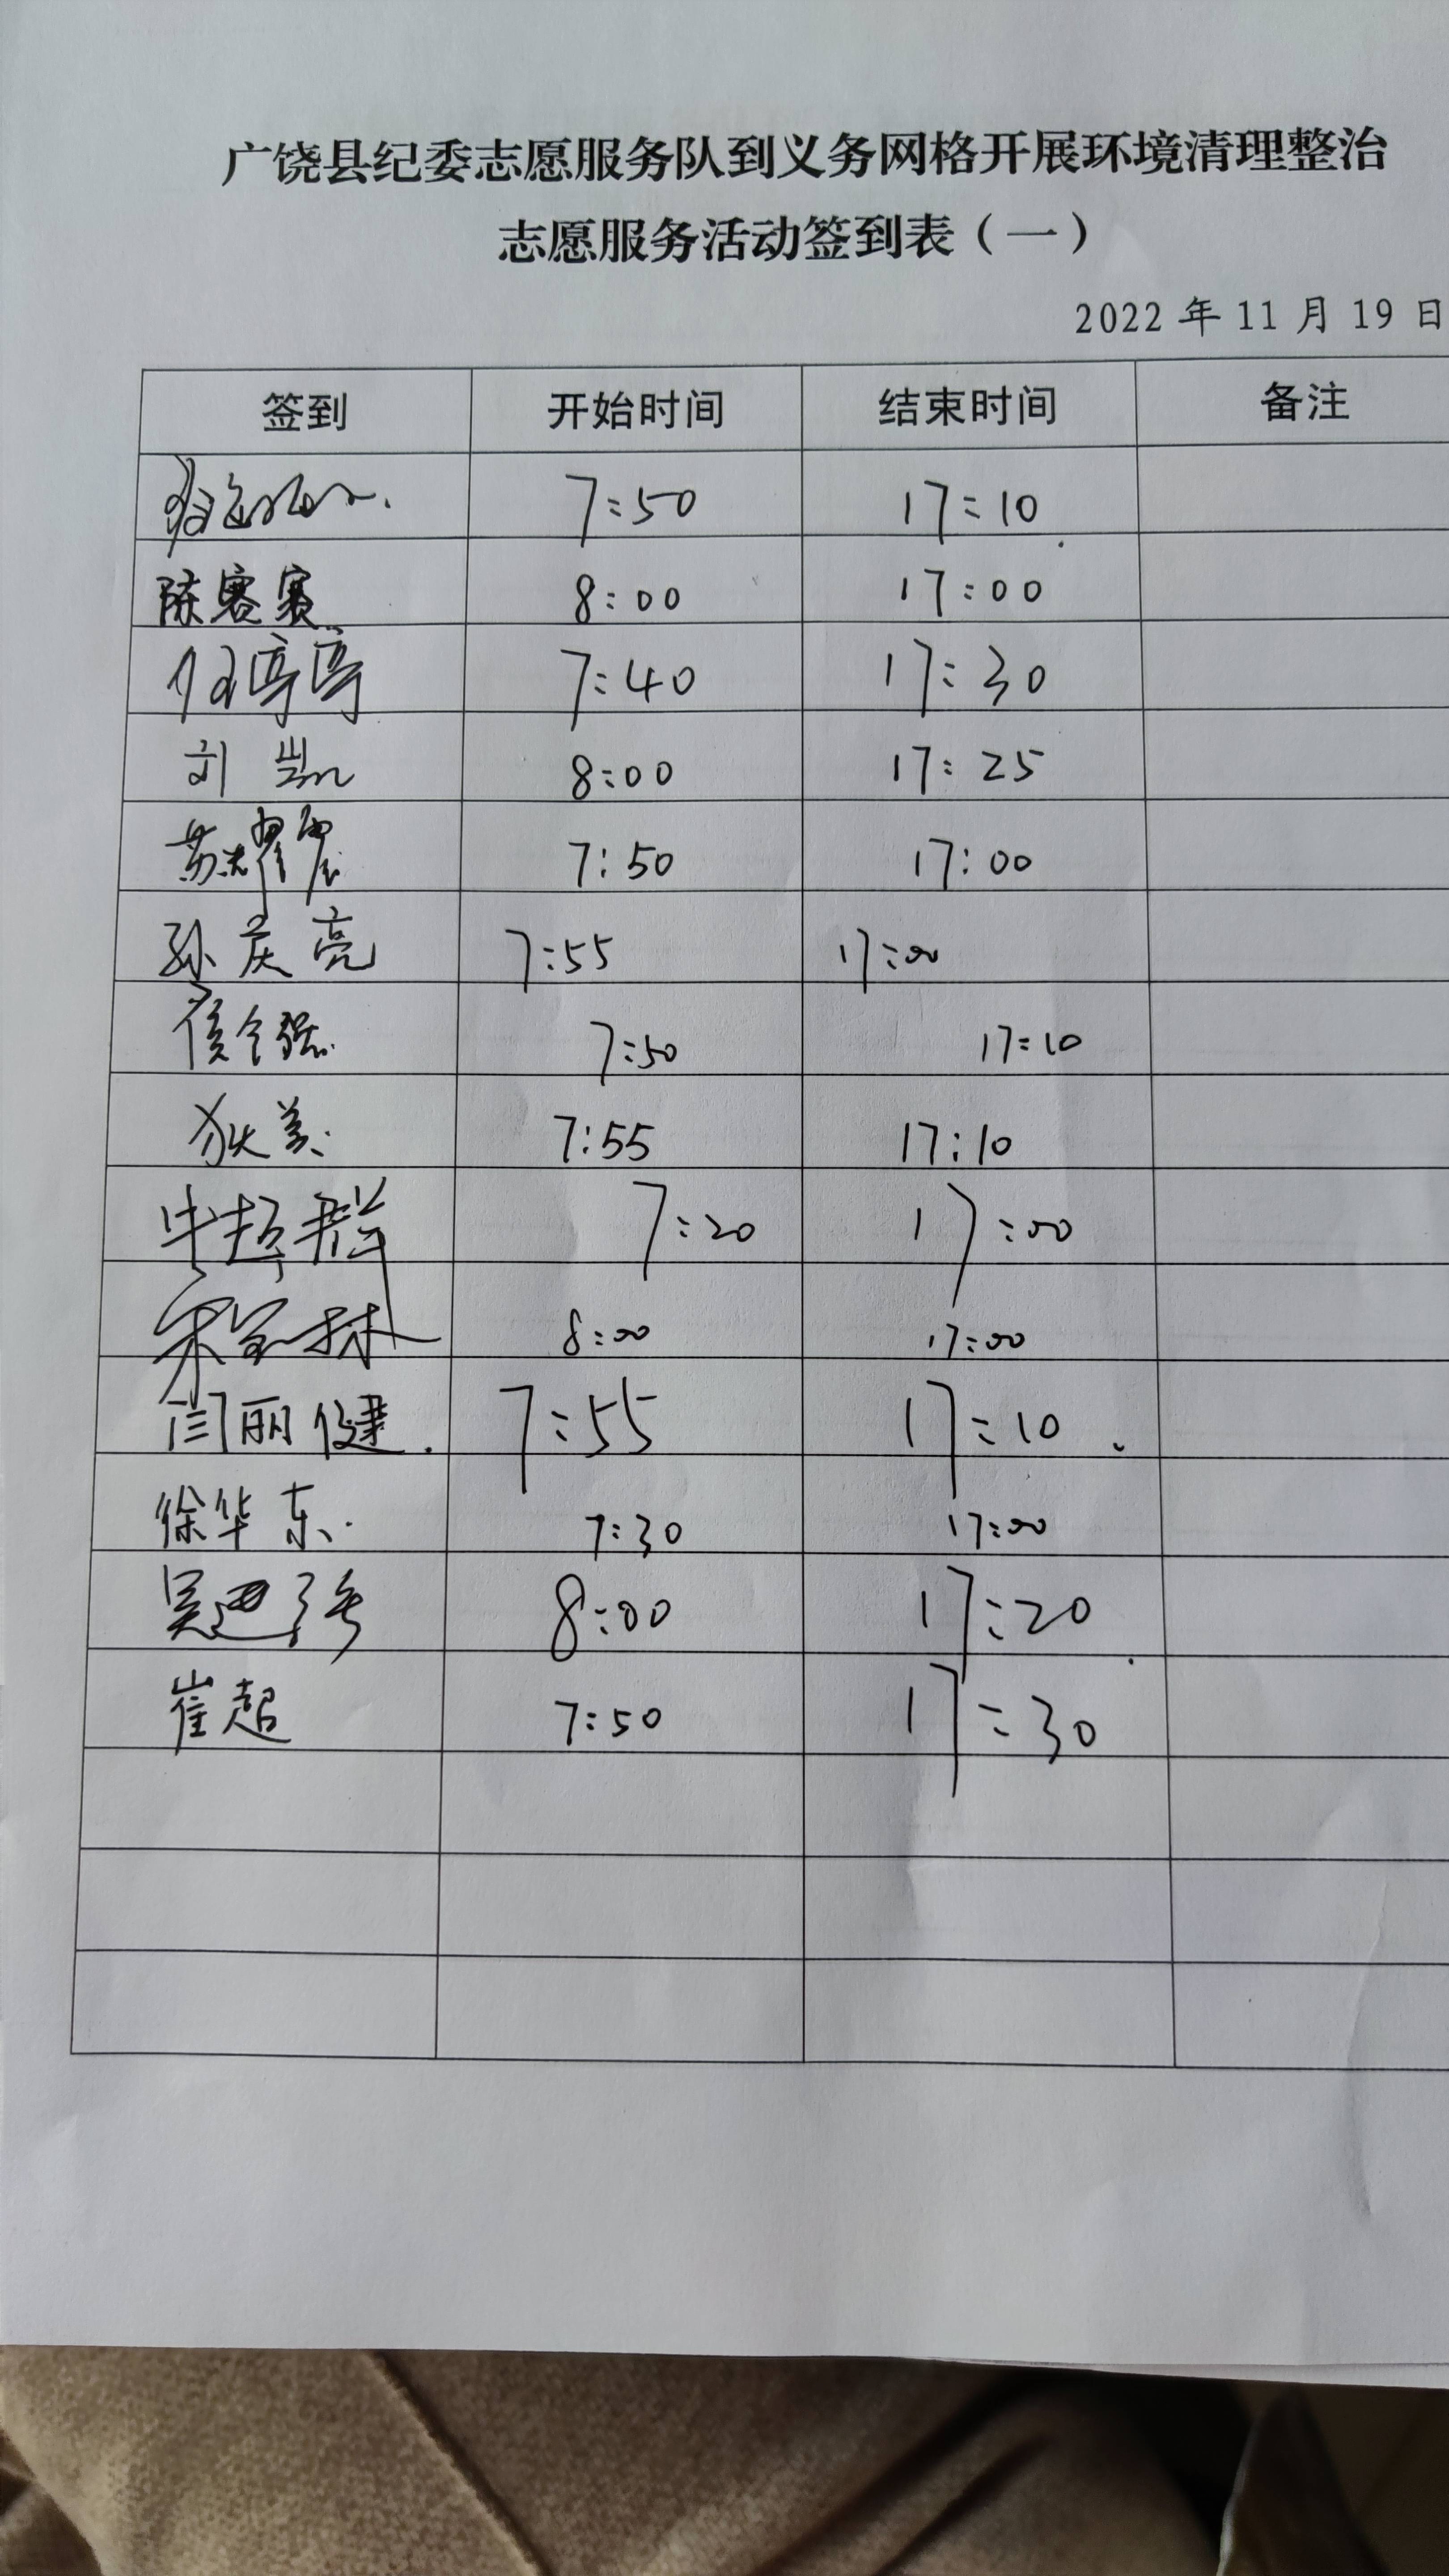 广饶县纪委志愿服务队到义务网格开展环境清理整治
志愿服务活动签到表（一）
2022 年 11 月 19 日
签到 开始时间 结束时间 备注
7:50 17:10
陈赛赛 8:00 17:00
任亭亭 7:40 17:30
刘凯 8:00 17:25
苏耀 7:50 17:00
孙庆亮 7:55 17:00
侯令强 7:50 17:10
狄美 7:55 17:10
牛超群 7:20 17:00
宋宝林 8:00 17:00
闫丽健 7:55 17:10
徐华东 7:30 17:00
吴 8:00 17:20
崔超 7:50 17:30